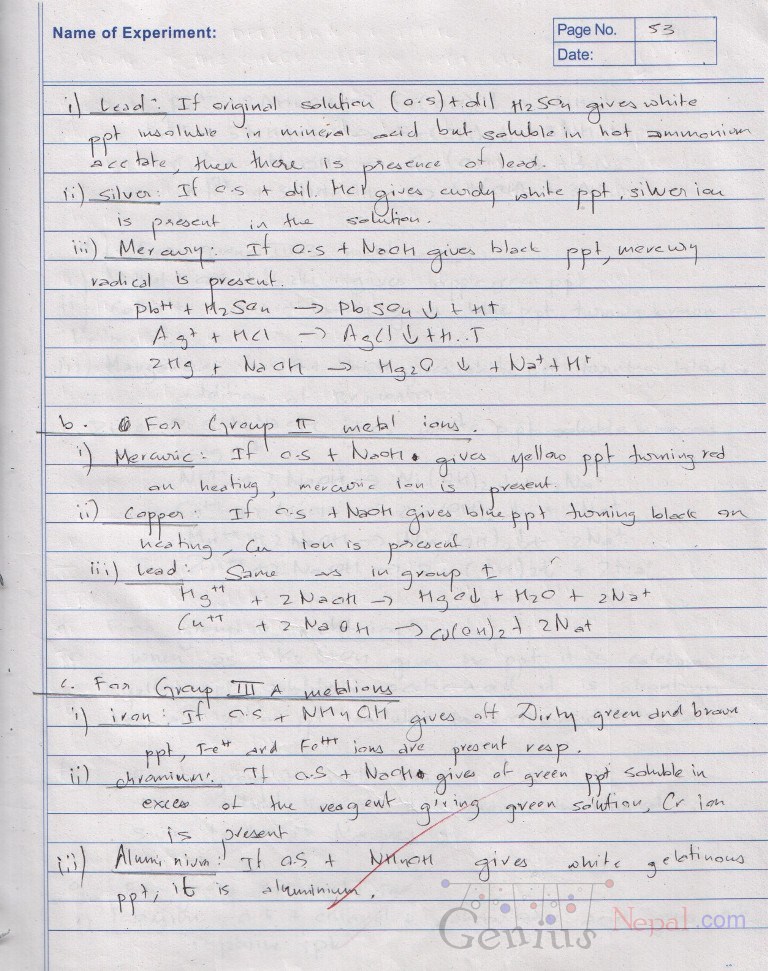 Name of Experiment:
Page No. 53
Date:
i) Lead: If original solution (o.s) + dil H2SO4 gives white
ppt insoluble in mineral acid but soluble in hot ammonium
acetate, then there is presence of lead.
ii) Silver: If o.s + dil. HCl gives curdy white ppt, silver ion
is present in the solution.
iii) Mercury: If o.s + NaOH gives black ppt, mercury
radical is present.
Pb++ + H2SO4 → PbSO4 ↓ + H+
Ag+ + HCl → AgCl ↓ + H..T
2Hg + NaOH → Hg2O ↓ + Na+ + H+
b. For Group II metal ions.
i) Mercuric: If o.s + NaOH gives yellow ppt turning red
on heating, mercuric ion is present.
ii) Copper: If o.s + NaOH gives blue ppt turning black on
heating, Cu ion is present
iii) Lead: Same as in group I
Hg++ + 2NaOH → HgO↓ + H2O + 2Na+
Cu++ + 2NaOH → Cu(OH)2↓ 2Na+
c. For Group III A metlions
i) iron: If o.s + NH4OH gives off Dirty green and brown
ppt, Fe++ and Fe+++ ions are present resp.
ii) chromium: If o.s + NaOH gives of green ppt soluble in
excess of the reagent giving green solution, Cr ion
is present
iii) Aluminium: If o.s + NH4OH gives white gelatinous
ppt, it is aluminium.
Genius Nepal.com